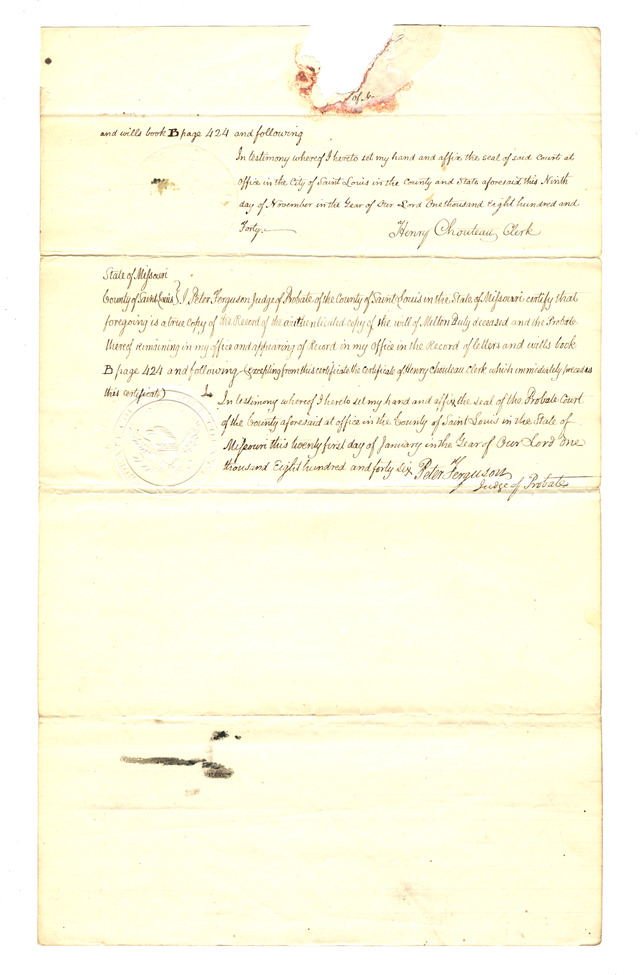 and wills book B page 424 and following
In testimony whereof I hereto set my hand and affix the seal of said Court at
Office in the City of Saint Louis in the County and State aforesaid this Ninth
day of November in the Year of Our Lord One thousand Eight hundred and
Forty.
Henry Chouteau Clerk
State of Missouri
County of Saint Louis } I Peter Ferguson Judge of Probate of the County of Saint Louis in the State of Missouri certify that
foregoing is a true Copy of the Record of the authenticated copy of the will of Milton Duty deceased and the Probate
thereof remaining in my office and appearing of Record in my Office in the Record of letters and wills book
B page 424 and following (excepting from this certificate the certificate of Henry Chouteau Clerk which immediately precedes
this certificate)
In testimony whereof I hereto set my hand and affix the seal of the Probate Court
of the County aforesaid at office in the County of Saint Louis in the State of
Missouri this twenty first day of January in the Year of Our Lord One
thousand Eight hundred and forty six
Peter Ferguson
Judge of Probate